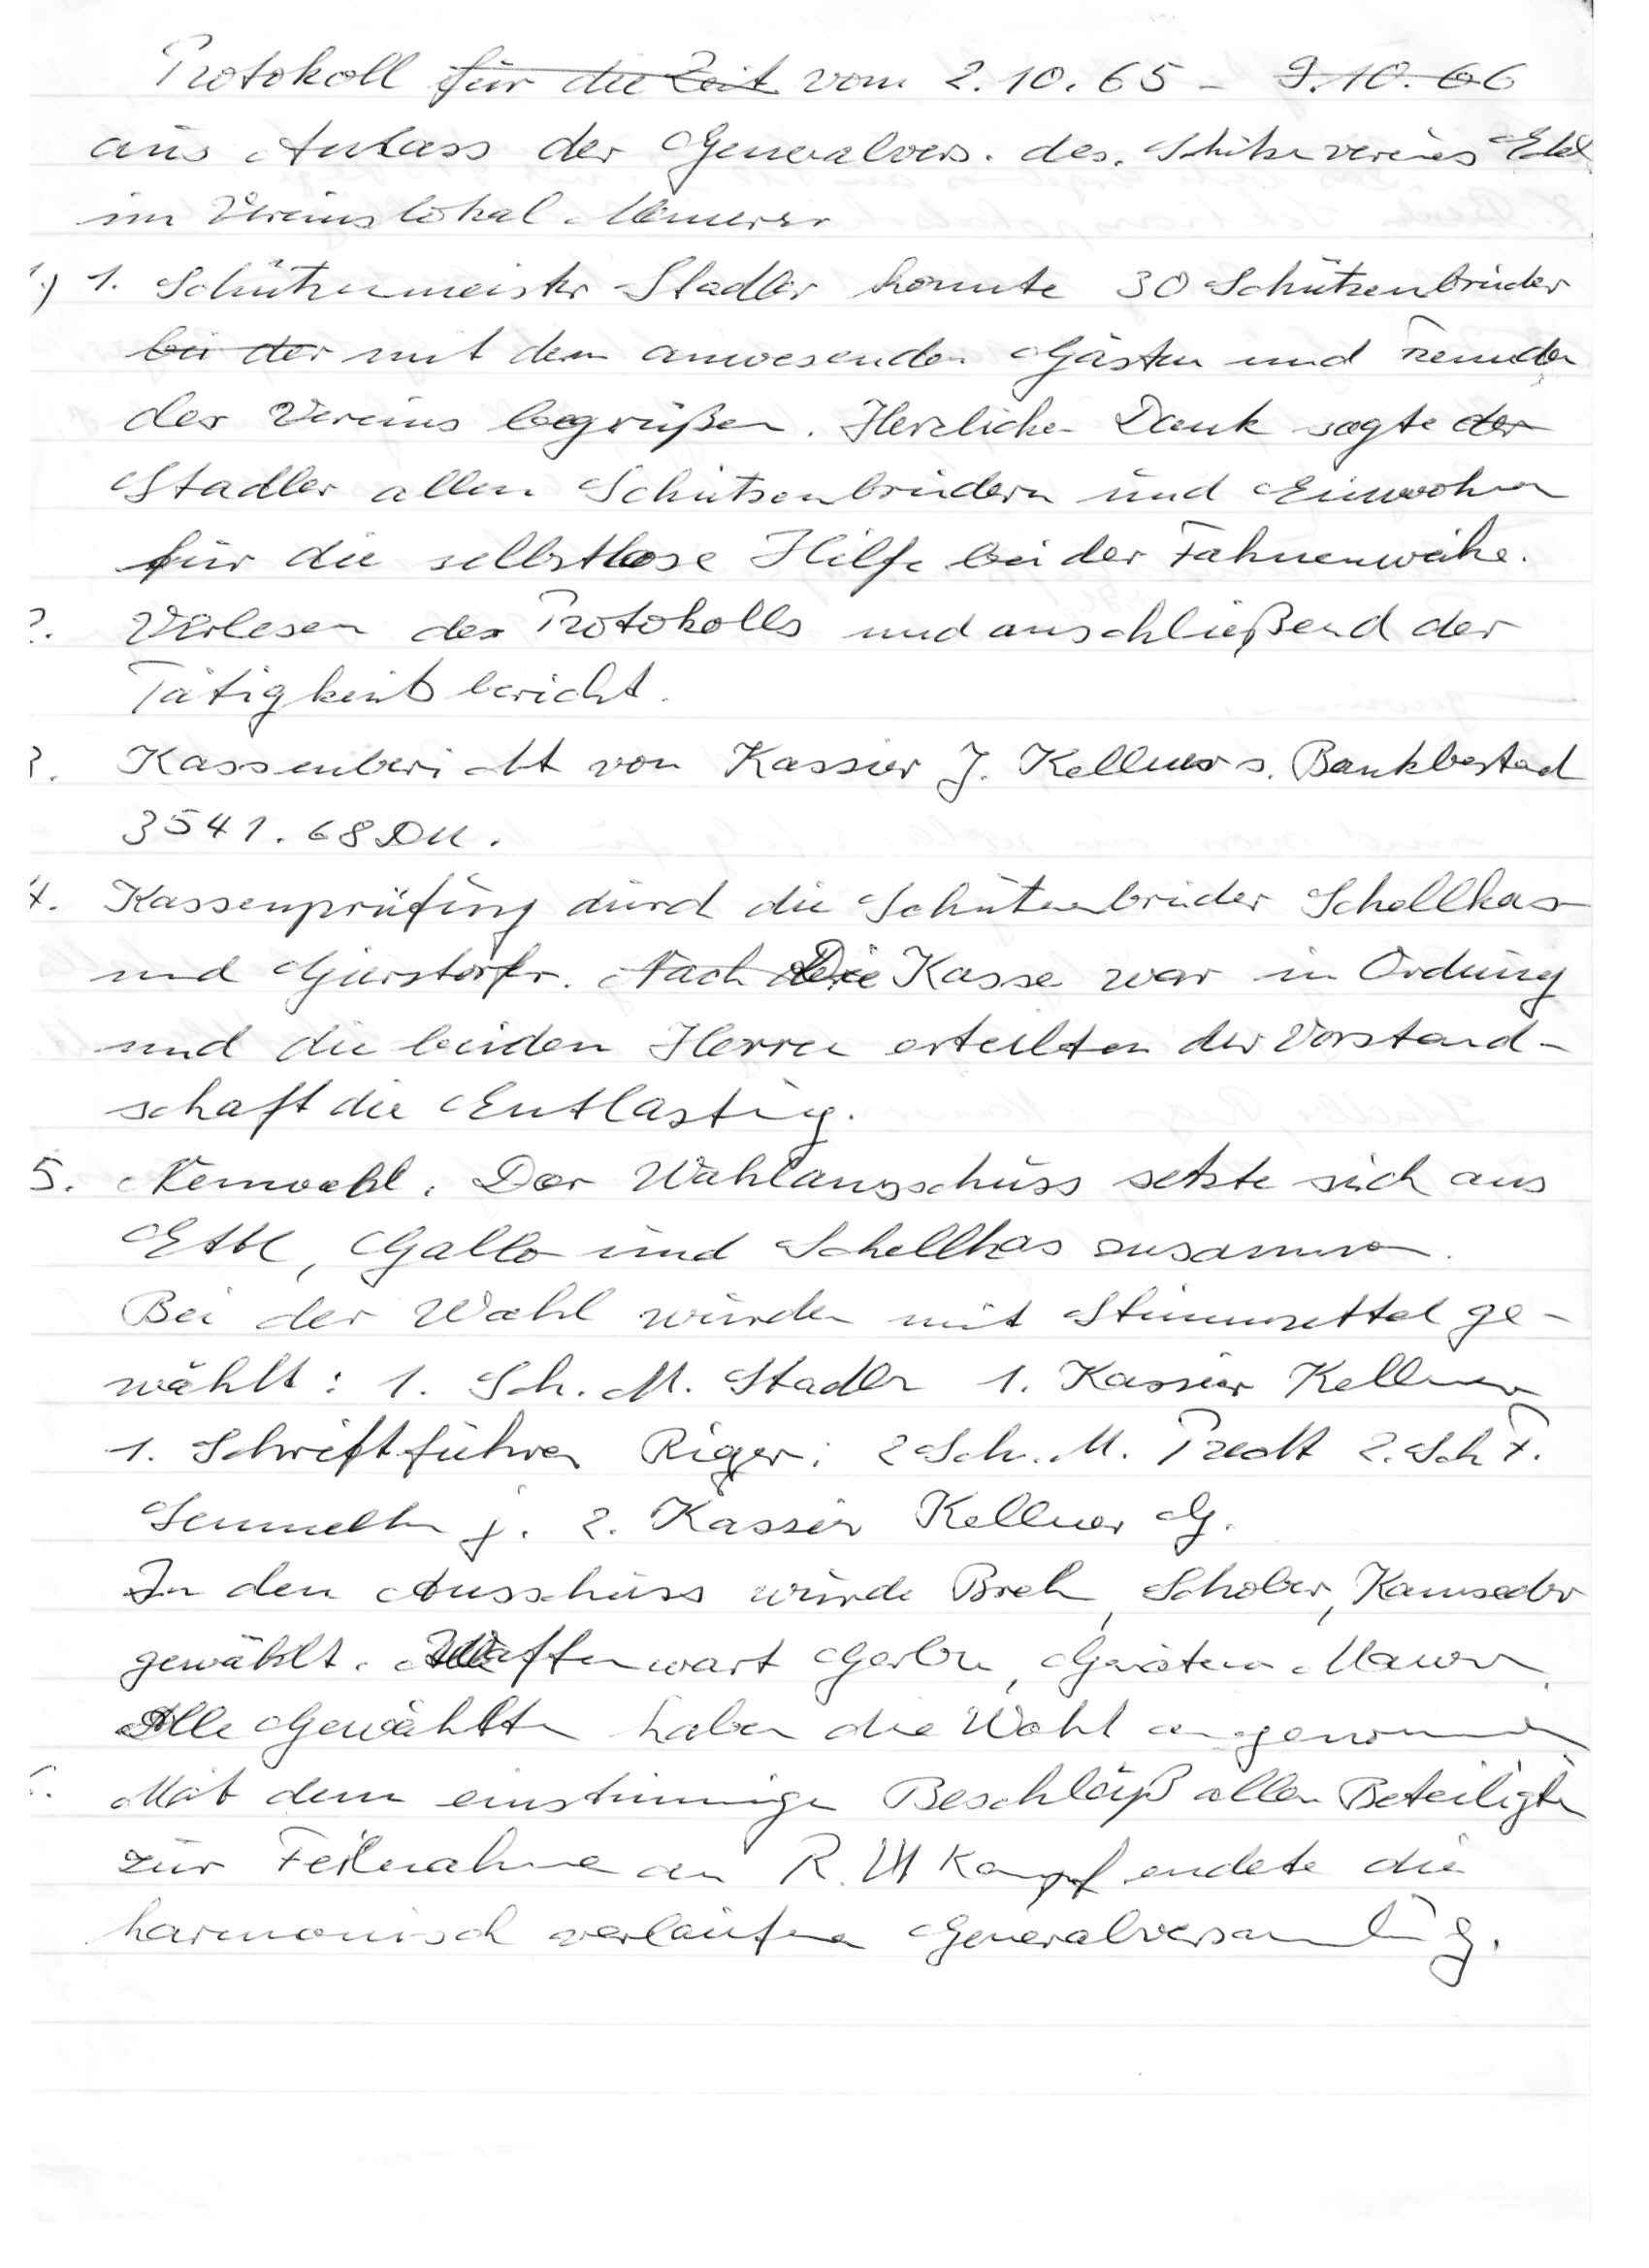 Protokoll für die Zeit vom 2.10.65 - 9.10.66
aus Anlass der Generalvers. des. Schützenvereines
im Vereinslokal
1) 1. Schützenmeister Stadler konnte 30 Schützenbrüder
bei der mit den anwesenden Gästen und Freunden
des Vereins begrüßen. Herzlichen Dank sagte der
Stadler allen Schützenbrüdern und Einwohner
für die selbstlose Hilfe bei der Fahnenweihe.
2. Verlesen des Protokolls und anschließend der
Tätigkeitsbericht.
3. Kassenbericht von Kassier J. Kellner s. Bankbestand
3541.68 DM.
4. Kassenprüfung durch die Schützenbrüder Schellkas
und Gierstorfer. Nach Die Kasse war in Ordnung
und die beiden Herren erteilten der Vorstand-
schaft die Entlastung.
5. Neuwahl. Der Wahlausschuss setzte sich aus
Ettl, Gallo und Schellkas zusammen.
Bei der Wahl wurden mit Stimmzettel ge-
wählt: 1. Sch. M. Stadler 1. Kassier Kellner
1. Schriftführer Riger; 2 Sch. M. 2. Sch F.
j. 2. Kassier Kellner G.
In den Ausschuss wurde Schober,
gewählt. Waffenwart
Alle Gewählten haben die Wahl angenommen
Mit dem einstimmigen Beschluß allen Beteiligten
zur Teilnahme an R. W Kampf endete die
harmonisch verlaufene Generalversammlung.